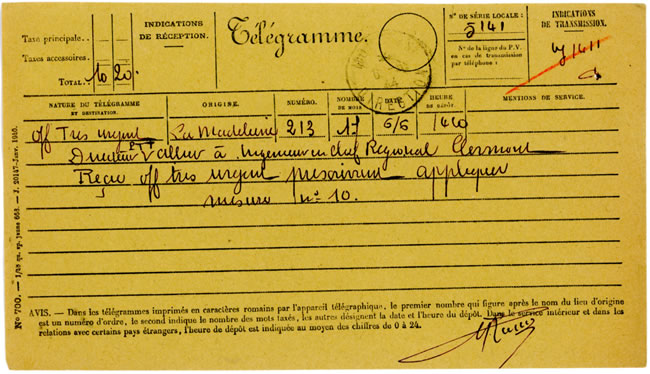 Taxe principale..
Taxes accessoires.
TOTAL.. 10 20.
INDICATIONS
DE RÉCEPTION.
Télégramme.
N° DE SÉRIE LOCALE :
5141
N° de la ligne du P.V.
en cas de transmission
par téléphone :
INDICATIONS
DE TRANSMISSION.
NATURE DU TÉLÉGRAMME
ET DESTINATION.
ORIGINE.
NUMÉRO.
NOMBRE
DE MOTS
DATE
HEURE
DE DÉPÔT.
MENTIONS DE SERVICE.
off Très urgent La Madeleine 213 17 6/6 1440
Directeur à Ingénieur en chef Régional Clermont
Reçu off très urgent prescrivant appliquer
mesure n° 10.
N° 700. — J. 20147-Janv. 1940.
AVIS. — Dans les télégrammes imprimés en caractères romains par l'appareil télégraphique, le premier nombre qui figure après le nom du lieu d'origine
est un numéro d'ordre, le second indique le nombre des mots taxés, les autres désignent la date et l'heure du dépôt. Dans le service intérieur et dans les
relations avec certains pays étrangers, l'heure de dépôt est indiquée au moyen des chiffres de 0 à 24.